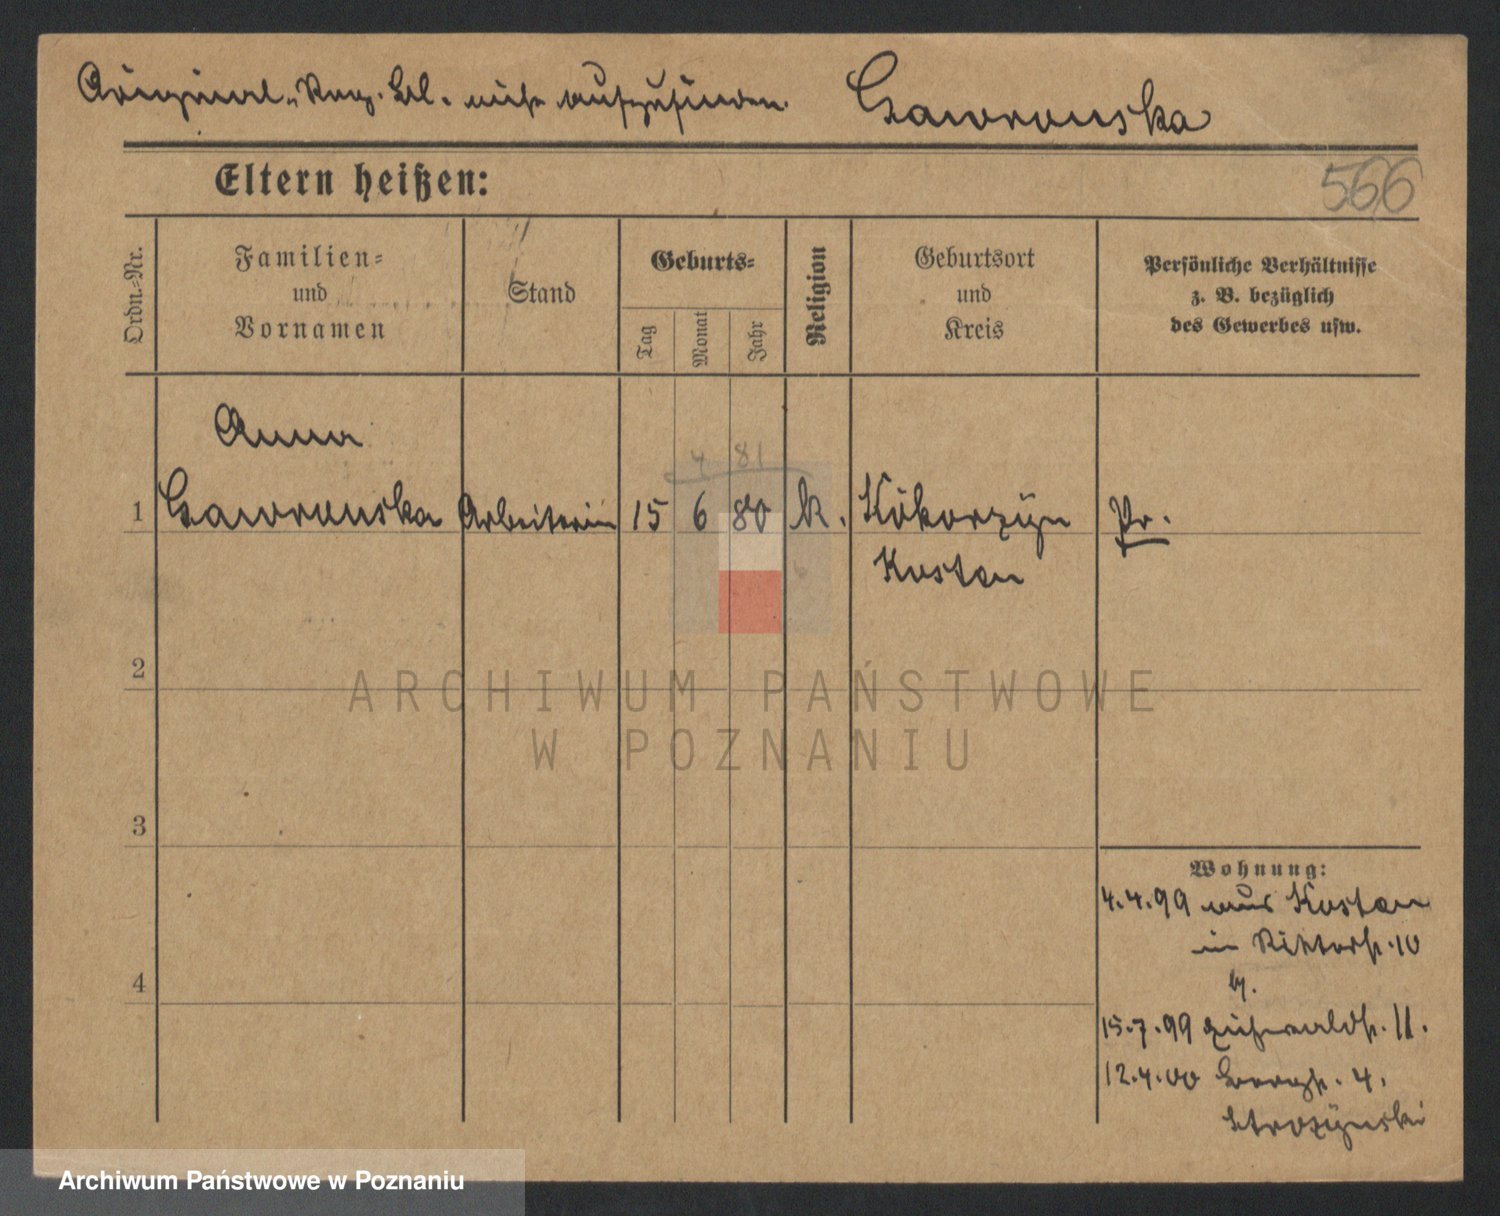 Original-Reg. Bl. nicht aufzufinden. Gaworonska
Eltern heißen:
566
Ordn.=Nr.
Familien=
und
Vornamen
Stand
Geburts=
Tag
Monat
Jahr
Religion
Geburtsort
und
Kreis
Persönliche Verhältnisse
z. B. bezüglich
des Gewerbes usw.
Anna
4 81
1 Gaworonska Arbeiterin 15 6 80 k. Kokorzyn Pr.
Kosten
2
ARCHIWUM PAŃSTWOWE
W POZNANIU
3
Wohnung:
4.4.99 aus Kosten
in Viktorstr. 10
4
b.
15.7.99 11.
12.4.00 Bergstr. 4.
Strozynski
Archiwum Państwowe w Poznaniu